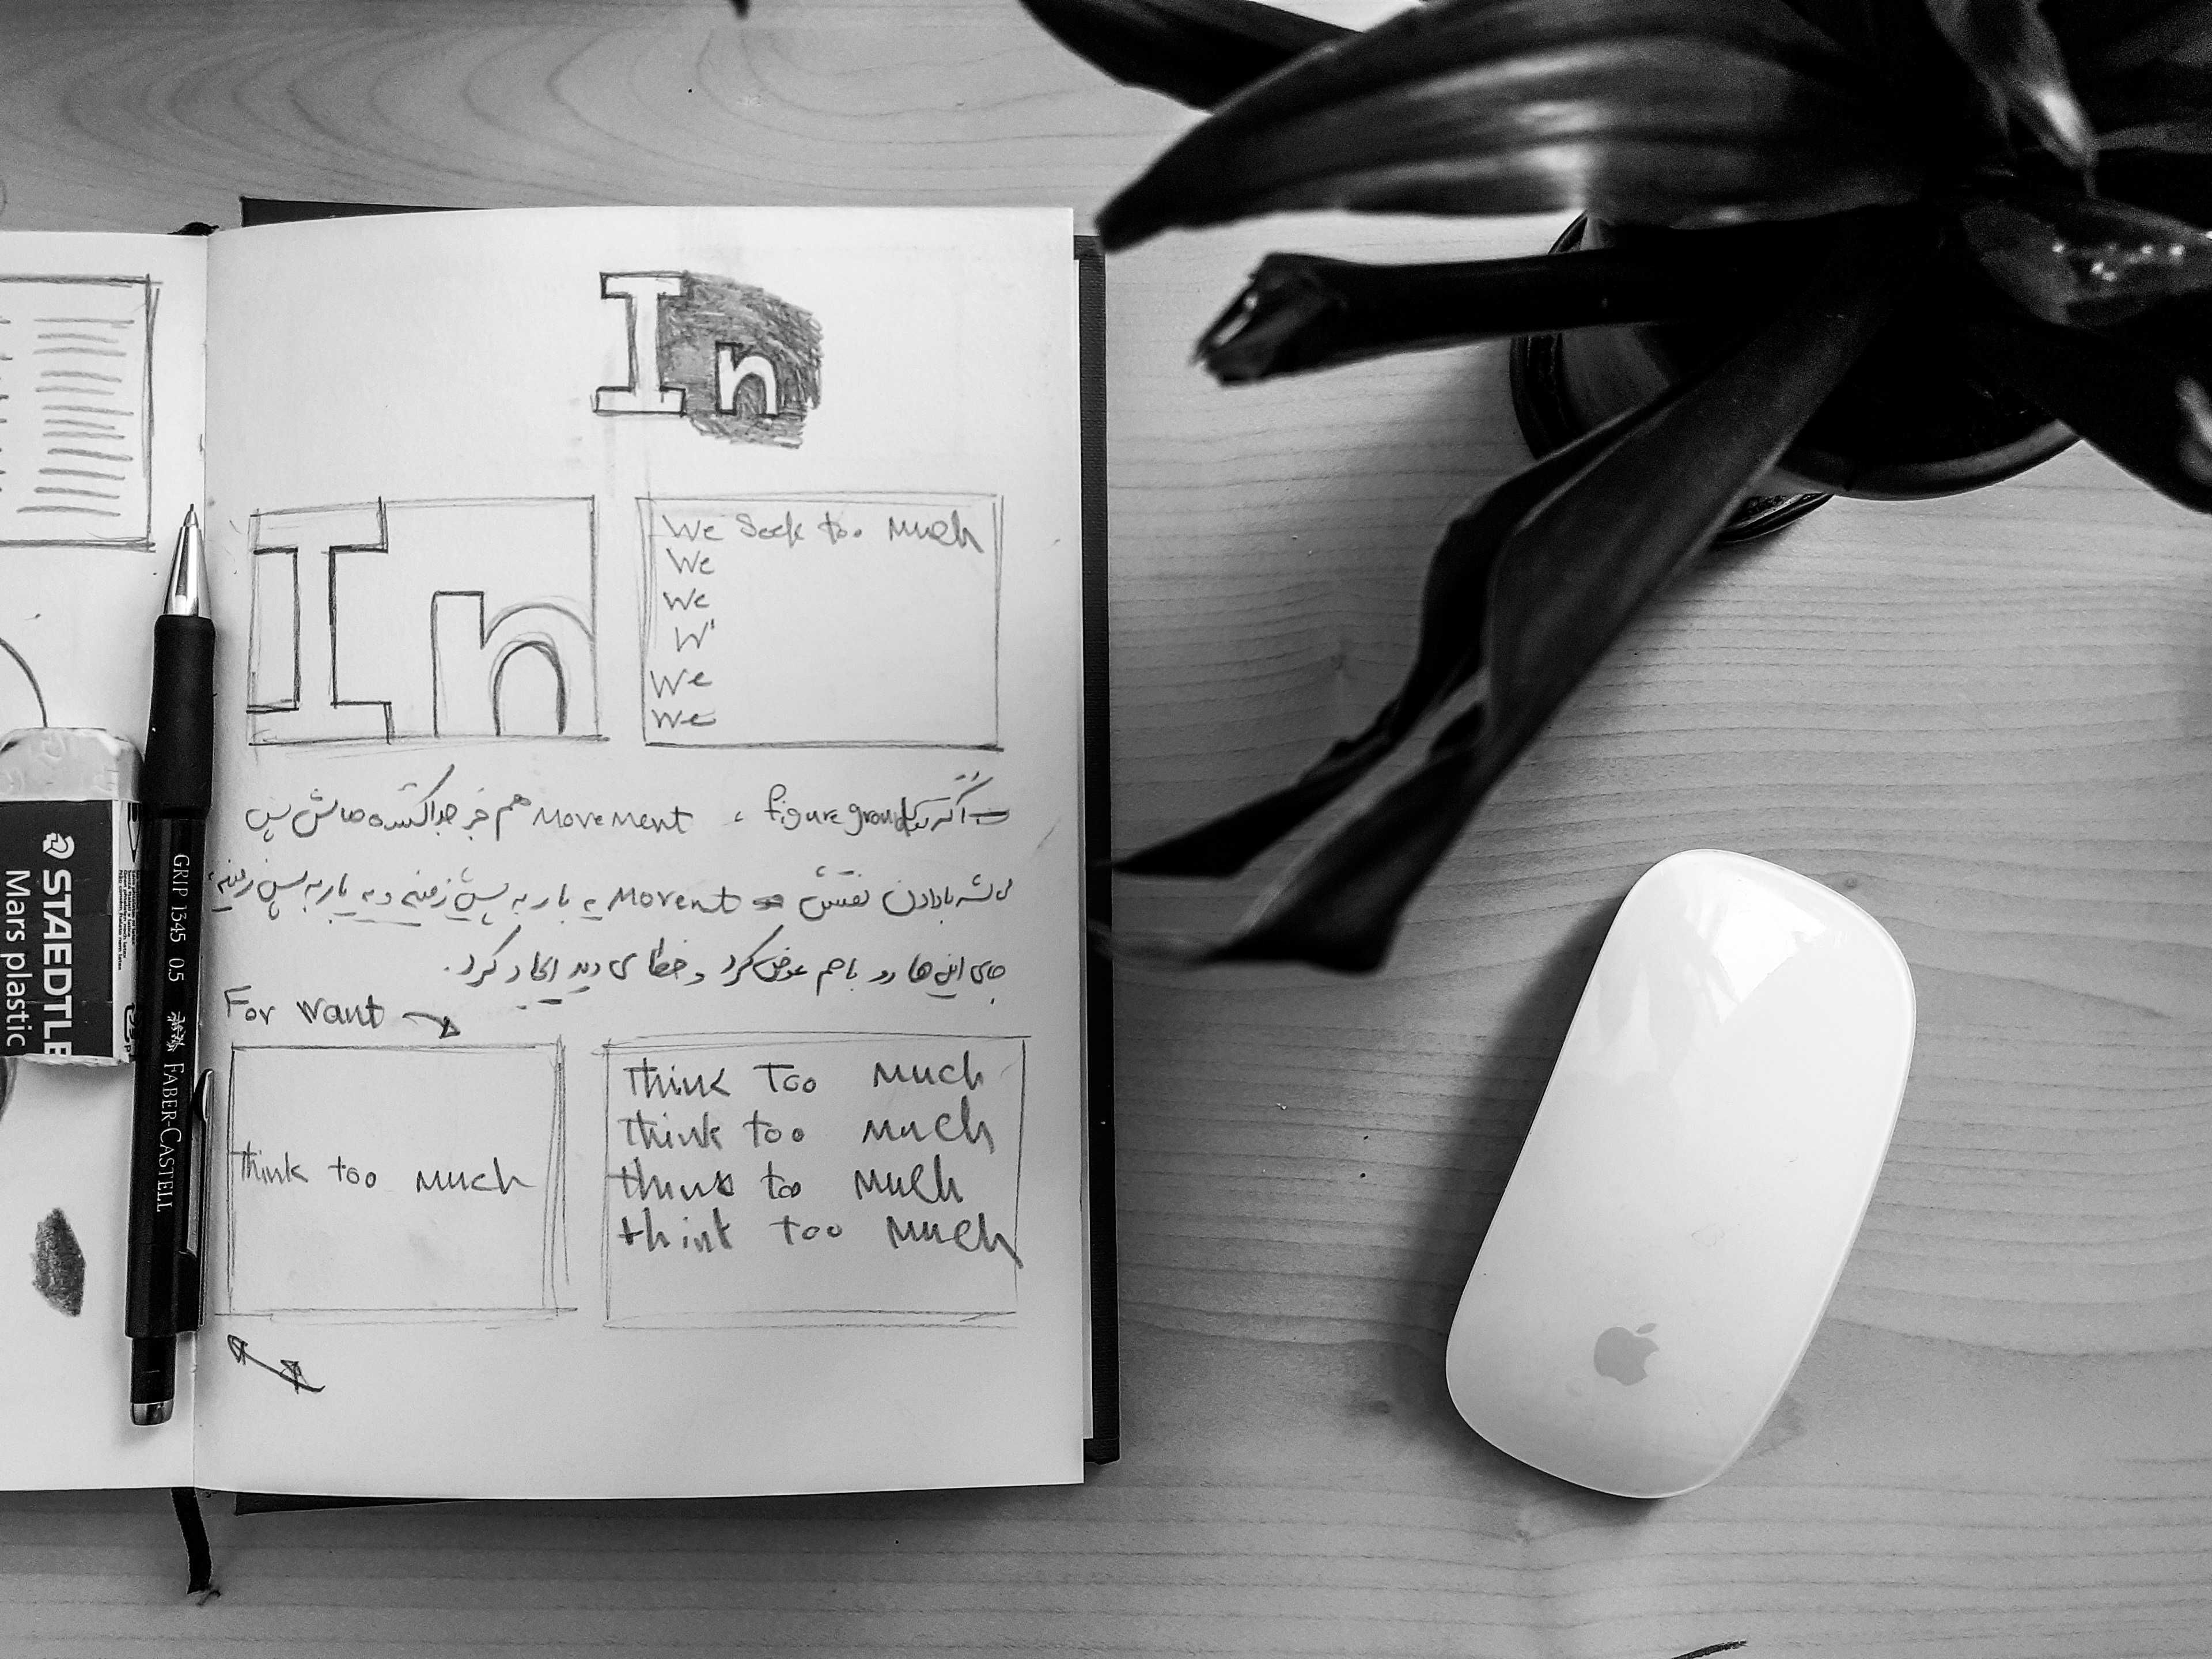 In
In
We Seek too much
We
We
W'
We
We
figure ground ، Movement هم
Movent یه بار به پیش زمینه و یه بار به پس زمینه،
جای این ها رو با هم عوض کرد و خطای دید ایجاد کرد.
For want
think too much
Think Too Much
think too much
think too much
think too much
STAEDTLE
Mars plastic
GRIP 1345 0.5 FABER-CASTELL